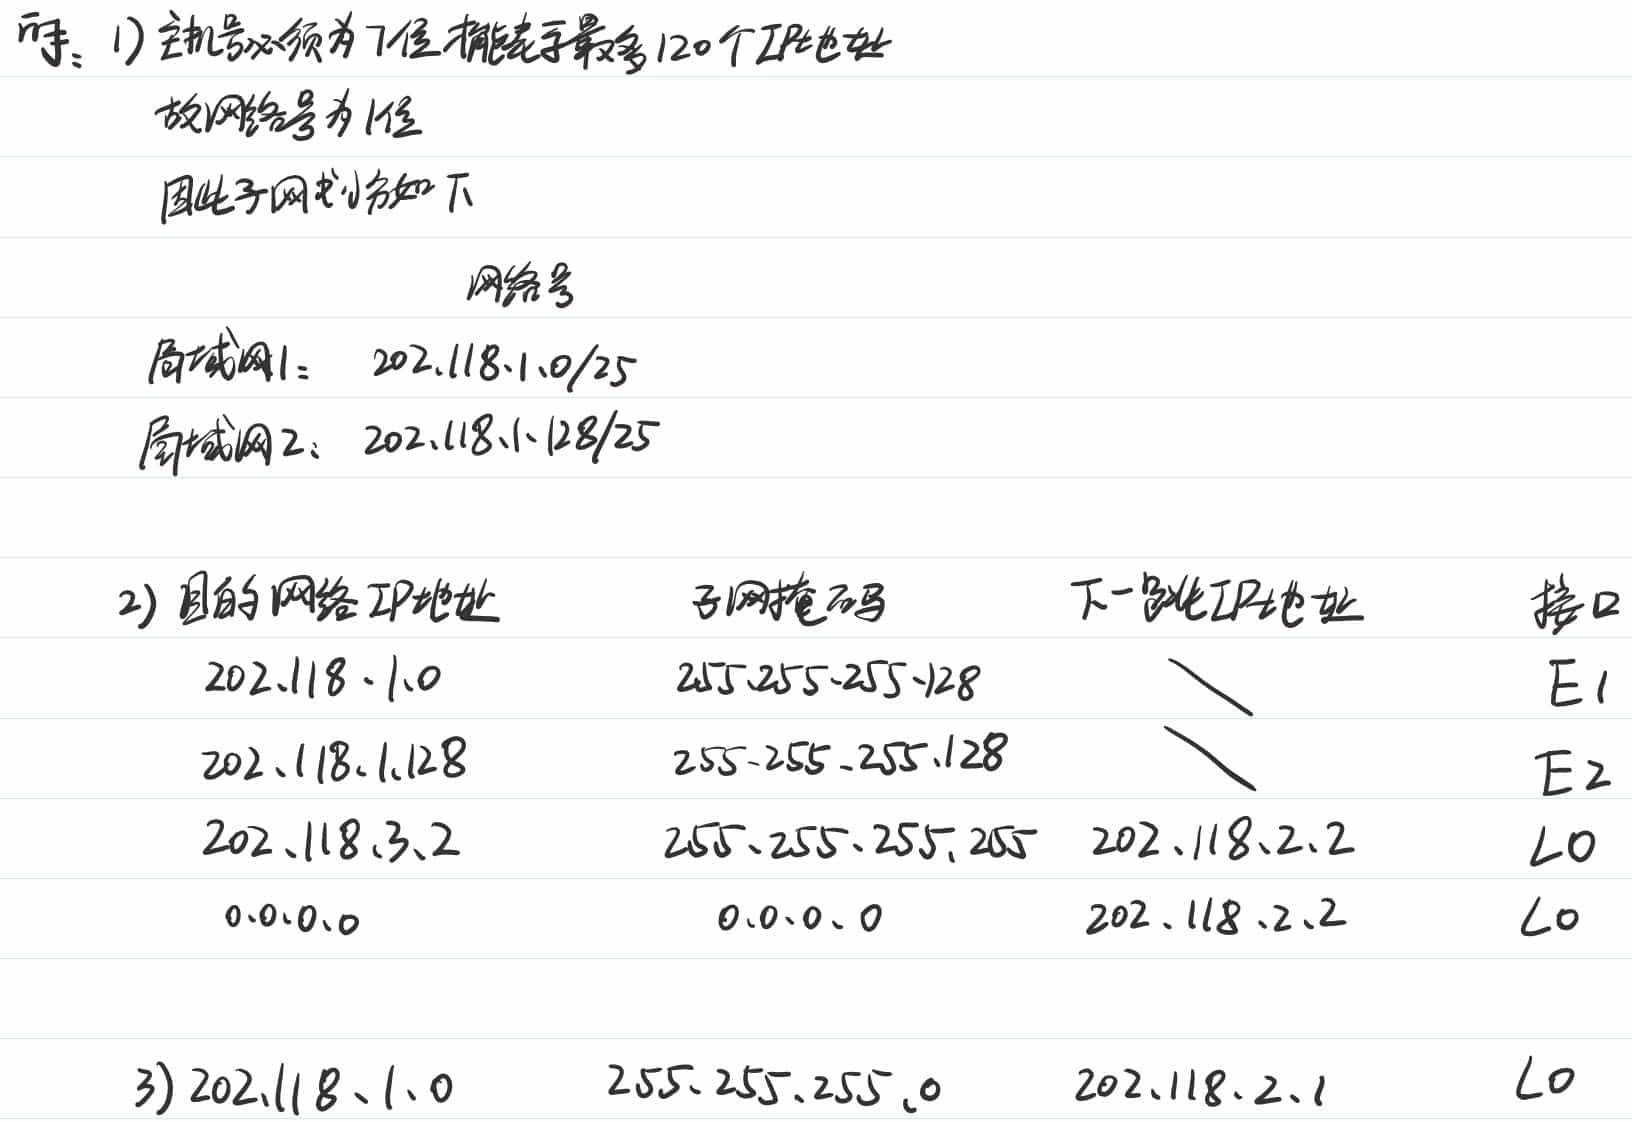 解：1) 主机号必须为7位才能表示最多120个IP地址
故网络号为1位
因此子网划分如下
网络号
局域网1： 202.118.1.0/25
局域网2： 202.118.1.128/25
2) 目的网络IP地址 子网掩码 下一跳IP地址 接口
202.118.1.0 255.255.255.128 \ E1
202.118.1.128 255.255.255.128 \ E2
202.118.3.2 255.255.255.255 202.118.2.2 L0
0.0.0.0 0.0.0.0 202.118.2.2 L0
3) 202.118.1.0 255.255.255.0 202.118.2.1 L0